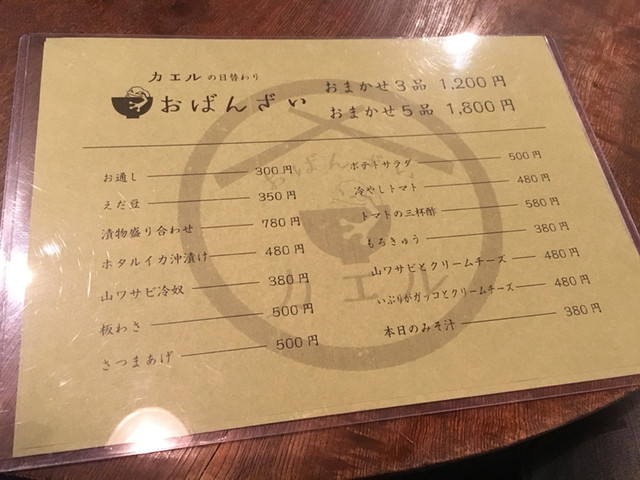 カエルの日替わり
おばんざい
おまかせ3品 1,200円
おまかせ5品 1,800円
お通し 300円
えだ豆 350円
漬物盛り合わせ 780円
ホタルイカ沖漬け 480円
山ワサビ冷奴 380円
板わさ 500円
さつまあげ 500円
ポテトサラダ 500円
冷やしトマト 480円
トマトの三杯酢 580円
もろきゅう 380円
山ワサビとクリームチーズ 480円
いぶりがガッコとクリームチーズ 480円
本日のみそ汁 380円
おばんざい
カエル